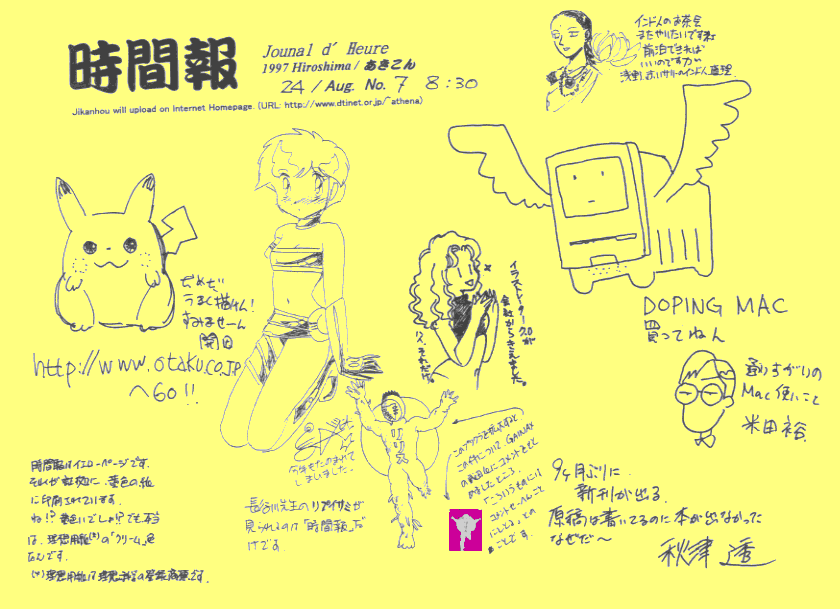 時間報
Jounal d' Heure
1997 Hiroshima / あきこん
24 / Aug. No. 7 8:30
Jikanhou will upload on Internet Homepage. (URL: http://www.dtinet.or.jp/~athena)
インド人のお茶会
またやりたいですね
前泊できれば
いいのですが
だめだ、
うまく描けん!
すみませーん
http://www.otaku.co.jp
へGO!!
イラストレーター7.0が
会社からきえました。
DOPING MAC
買ってねん
通りすがりの
Mac使いこと
米田裕
今年もたのまれて
しまいました。
リリス
長谷川先生のリプイサミが
見られるのは「時間報」だ
けです。
このアリフラを拡大すると
この件について、GAINAX
コメントをもと
めましたところ、
「こういうものには
コメントせんこと
にしとる」との
ことです。
9ヶ月ぶりに
新刊が出る。
原稿は書いてるのに本が出なかった
なぜだ〜
秋津透
時間報はイエローページです。
それが証拠に黄色の紙
に印刷されています。
ね!?黄色いでしょ!?でも本当
は、理想用紙(*)の「クリーム」色
なんです。
(*)理想用紙は理想科学の登録商標です。